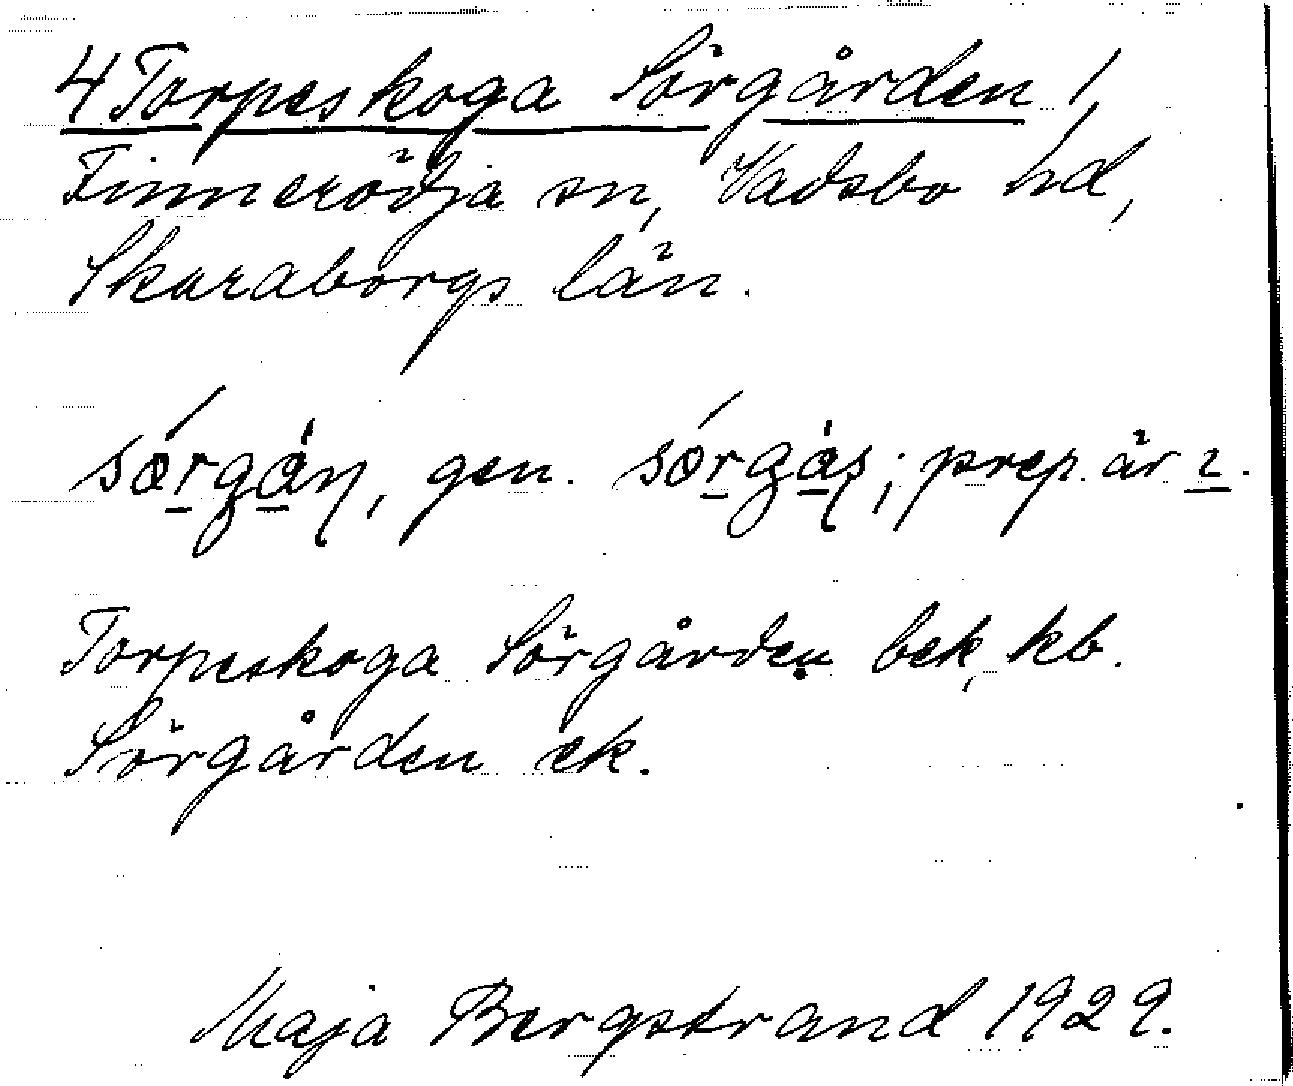 4 Torpeskoga Sörgården 1,
Finnerödja sn, Vadsbo hd,
Skaraborgs län.
gen. prep. är ɩ.
Torpeskoga Sörgården bek, kb.
Sörgården ek.
Maja Bergstrand 1929.